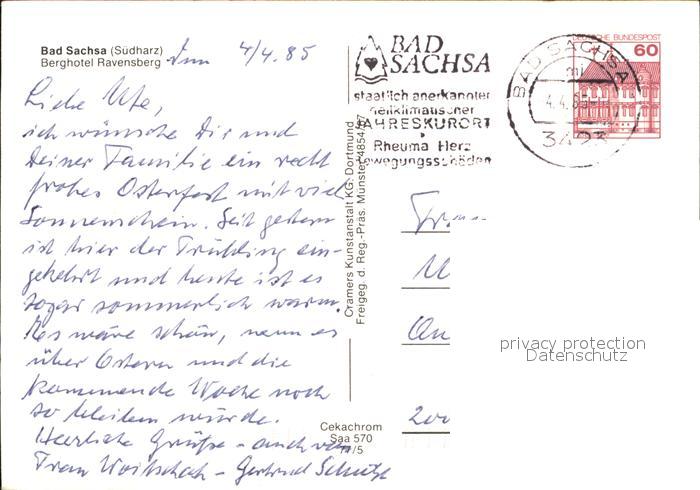 Bad Sachsa (Südharz)
Berghotel Ravensberg
4/4.85
Liebe Ute,
ich wünsche Dir und
Deiner Familie ein recht
frohes Osterfest mit viel
Sonnenschein. Seit gestern
ist hier der Frühling ein-
gekehrt und heute ist es
sogar sommerlich warm.
Es wäre schön, wenn es
über Ostern und die
kommende Woche noch
so bleiben würde.
Herzliche Grüße - auch von
Frau - Gertrud
Cekachrom
Saa 570
/5
Cramers Kunstanstalt KG, Dortmund
Freigeg. d. Reg.-Präs. Münster 4854/
BAD
SACHSA
staatlich anerkannter
heilklimatischer
JAHRESKURORT
Rheuma Herz
Bewegungsschäden
BAD SACHSA
mi
4.4.85
3423
DEUTSCHE BUNDESPOST
60
privacy protection
Datenschutz